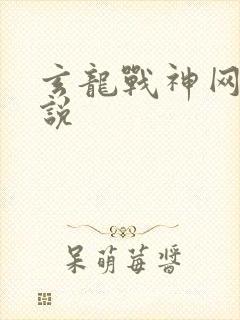 玄龍戰神网
說
呆萌莓醬